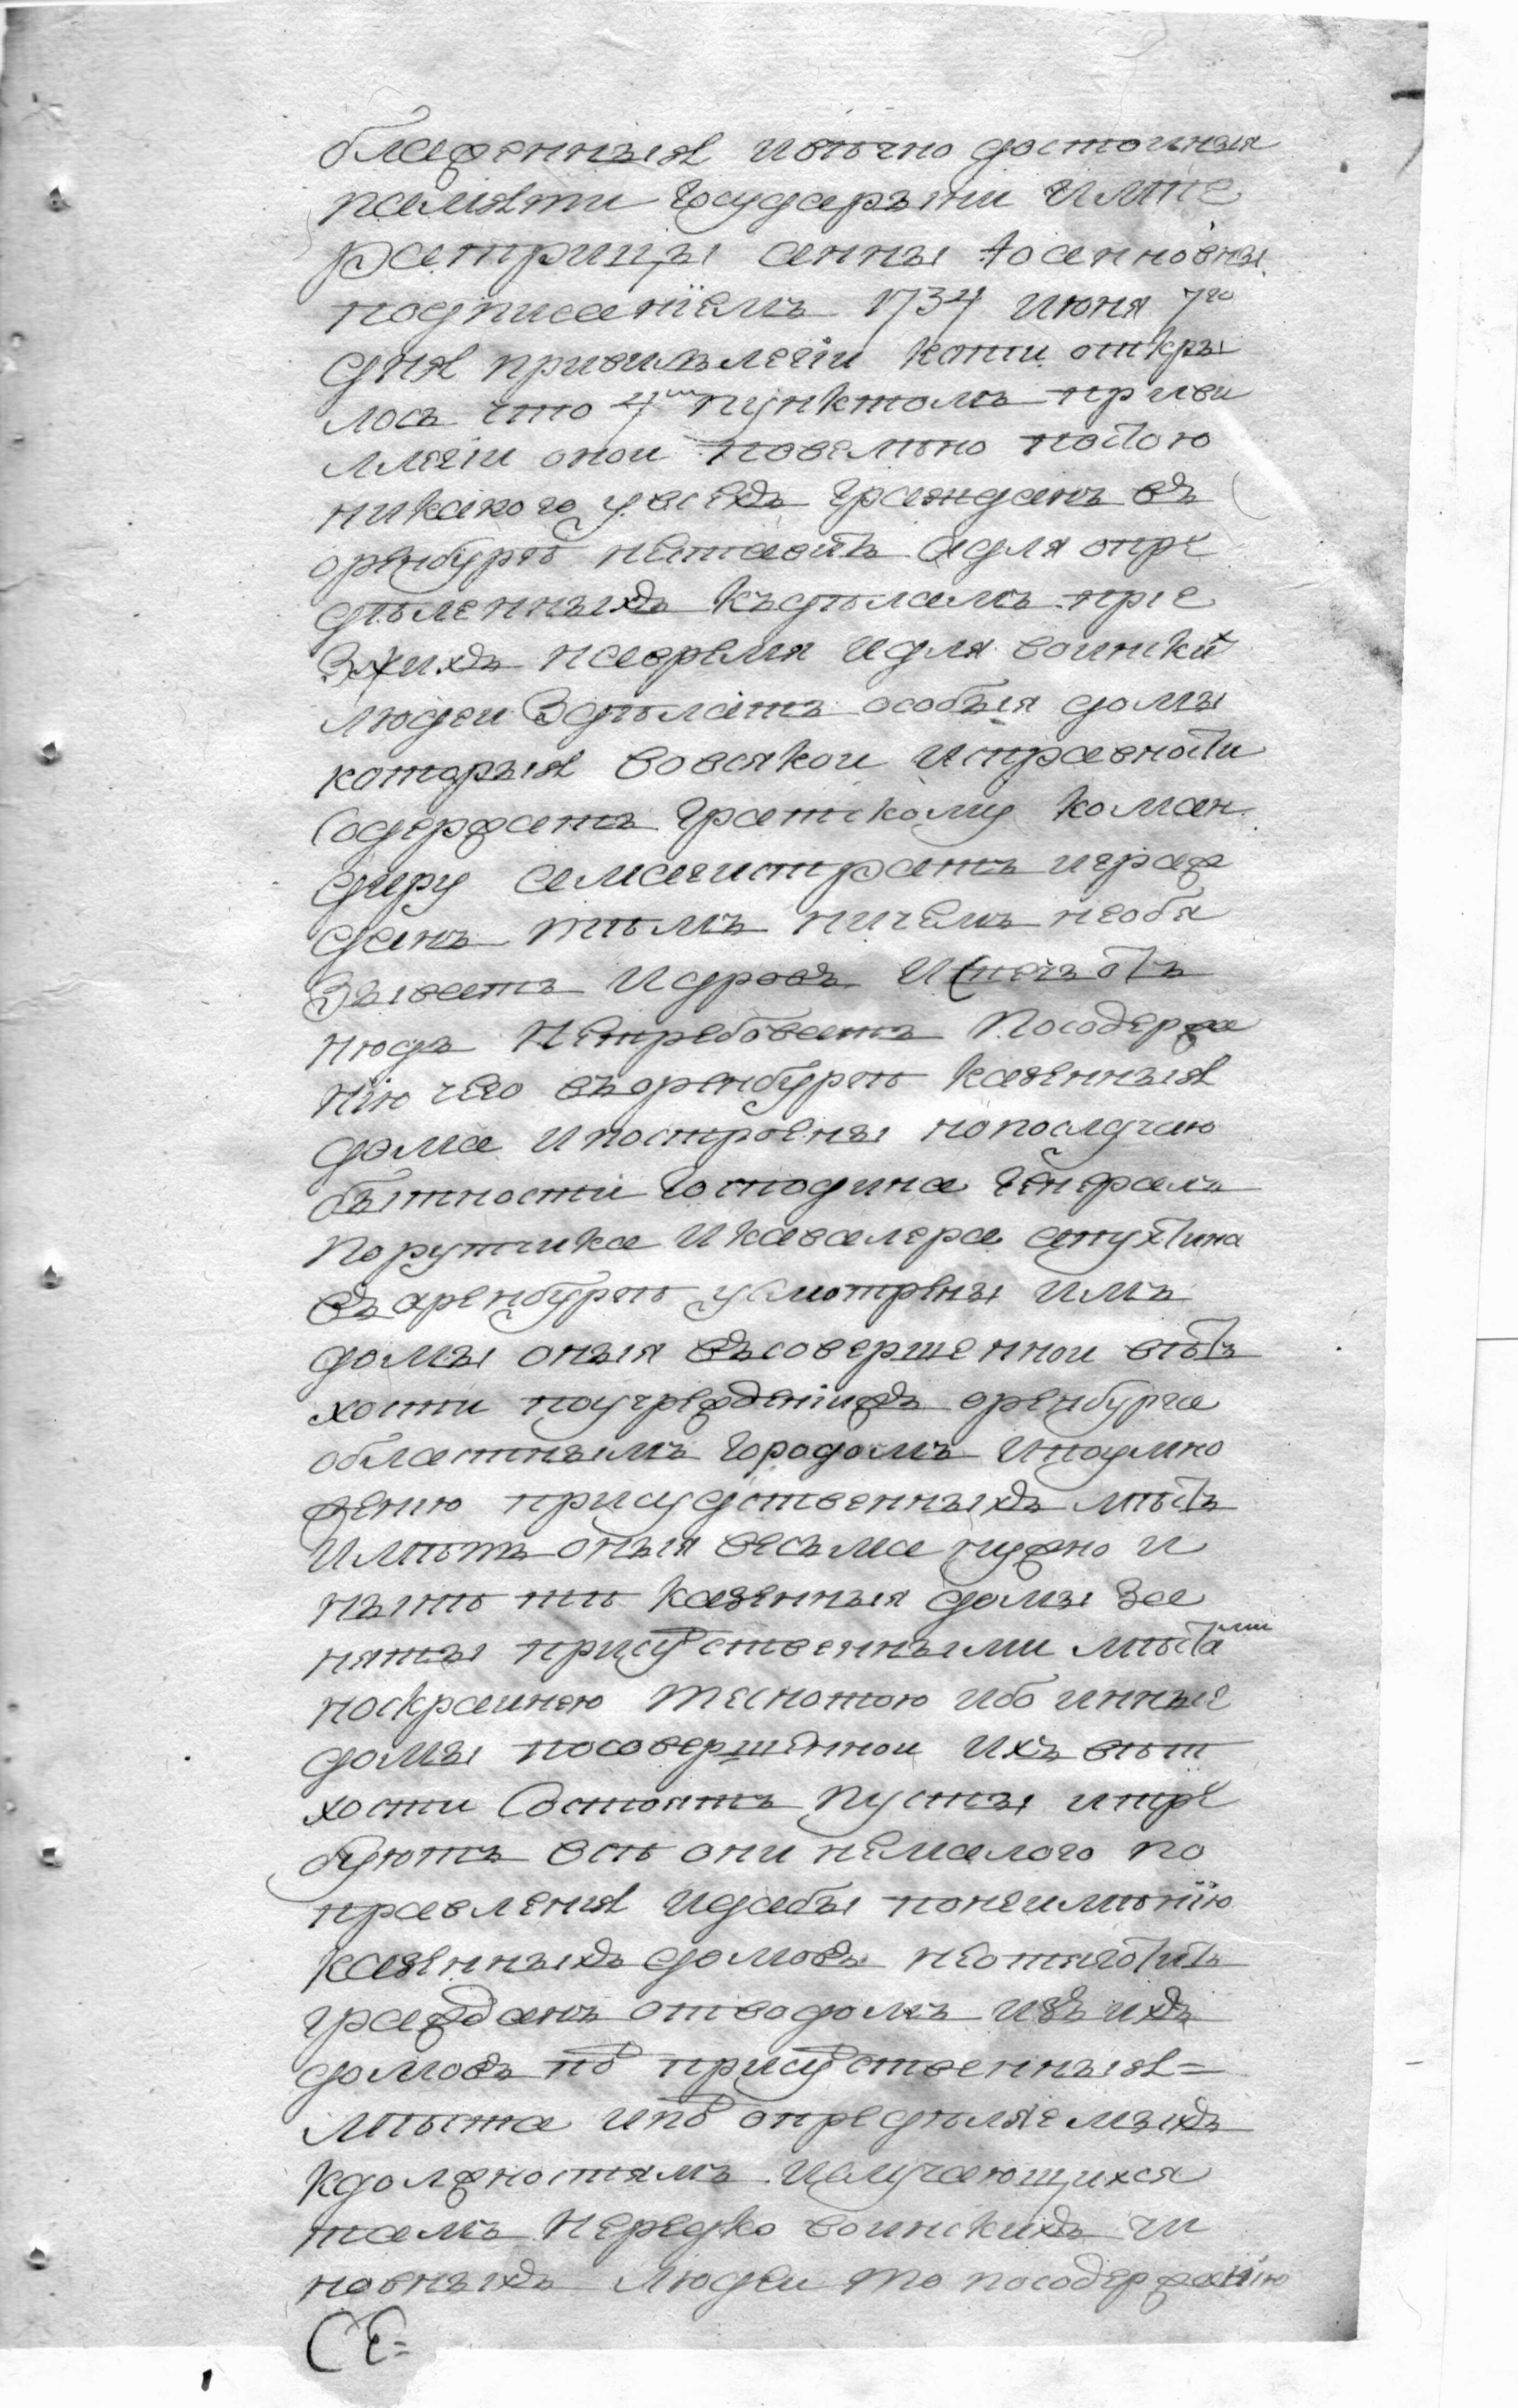 блаженныя ивѣчно достоиныя
памяти Государыни Импе
ратрицы анны Іоанновны
подписаніемъ 1734 июня 7го
дня привилѣгіи копіи откры
лось что 4м пунктомъ приви
ллегіи онои повелѣно постою
никакого увсехъ гражданъ въ
оренбургѣ неставить адля опре
дѣленныхъ къдѣламъ прие
зжихъ навремя идля воинских
людеи Здѣлать особыя домы
которыя вовсякои исправности
Содержать Градскому коман
диру амагистратъ играж
данъ тѣмъ ничемъ необя
зывать идровъ исвечь от
нюдъ нетребовать Посодержа
нію чего въоренбургѣ казенныя
дома ипостроены нопослучаю
бытности Господина Генералъ
Порутчика икавалера апухтина
въоренбургѣ усмотрены имъ
домы оныя въсовершеннои вѣт
хости поучрежденіижъ оренбурга
областнымъ городомъ ипоумно
жению присудственныхъ мѣстъ
имѣть оныя весьма нужно и
нынѣ тѣ казенныя домы за
няты присудственными мѣстами
поскраинею теснотою ибо инные
домы посовершеннои ихъ вѣт
хости Состоятъ пусты итре
буютъ всѣ они немалого по
правления идабы понеимѣнію
казенныхъ домовъ неотяготить
гражданъ отводомъ изъ ихъ
домовъ под присудственныя=
мѣста ипод определяемыхъ
кдолжностямъ ислучающихся
тамъ нередко воинскихъ чи
новныхъ людеи то посодержанію
СЕ=